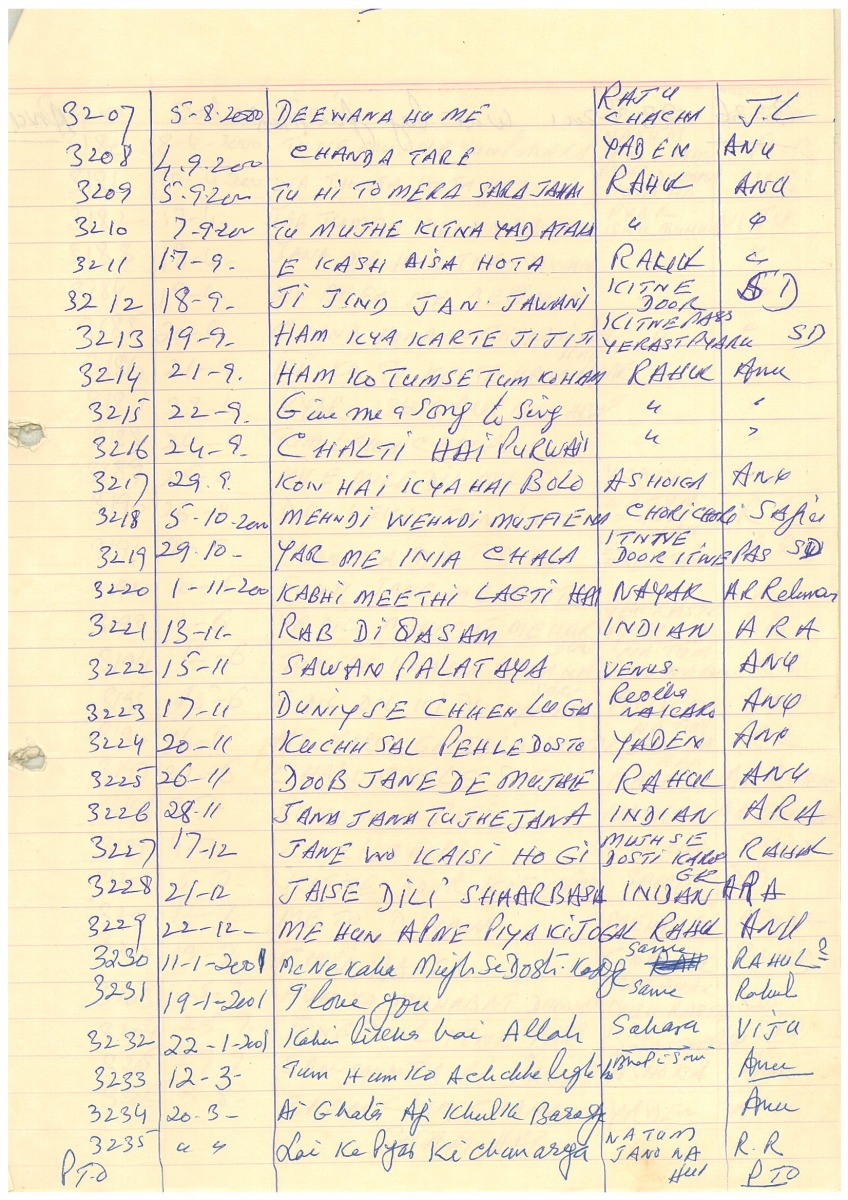 3207 5-8-2000 DEEWANA HU ME RAJU CHACHA J.L
3208 4.9.2000 CHANDA TARE YADEN ANU
3209 5-9-200 TU HI TO MERA SARA JAHAI RAHUL ANU
3210 7-9-200 TU MUJHE KITNA YAD ATAH " "
3211 17-9. E KASH AISA HOTA RAHUL "
3212 18-9. JI JIND JAN. JAWANI KITNE DOOR SD
3213 19-9. HAM KYA KARTE JI JI JI KITNE PASS SD
3214 21-9. HAM KO TUMSE TUM KO HAM RAHUL Anu
3215 22-9. Give me a Song to Sing " "
3216 24-9. CHALTI HAI PURWAII " "
3217 29.9. KON HAI KYA HAI BOLO ASHOKA ANU
3218 5-10-200 MEHNDI WEHNDI CHORI CHORI
3219 29.10- YAR ME CHALA DOOR PAS SD
3220 1-11-200 KABHI MEETHI LAGTI HAI NAYAK AR Rehman
3221 13-11- RAB DI QASAM INDIAN ARA
3222 15-11 SAWAN PALAT AYA VENUS. ANU
3223 17-11 DUNIY SE CHHEN LUGA NA KARO ANU
3224 20-11 KUCHH SAL PEHLE DOSTO YADEN ANU
3225 26-11 DOOB JANE DE MUJHE RAHUL ANU
3226 28-11 JANA JANA TUJHE JANA INDIAN ARA
3227 17-12 JANE WO KAISI HO GI MUJHSE DOSTI KAROGE RAHUL
3228 21-12 JAISE DILI SHAAR BASA INDIAN ARA
3229 22-12- ME HUN APNE PIYA KI JOGN RAHUL ANU
3230 11-1-2001 Mene kaha Mujh Se Dosti Karoge same RAHUL?
3231 19-1-2001 I love you same Rahul
3232 22-1-2001 Kahin likha hai Allah Sahara VIJU
3233 12-3- Tum Hum Ko Achchhe lagte ho Anu
3234 20.3- Ai Ghata Aj Khulke Barasja Anu
3235 " " Lai Ke Pyar Ki chanarya NA TUM JANO NA HUM R.R
PTO PTO